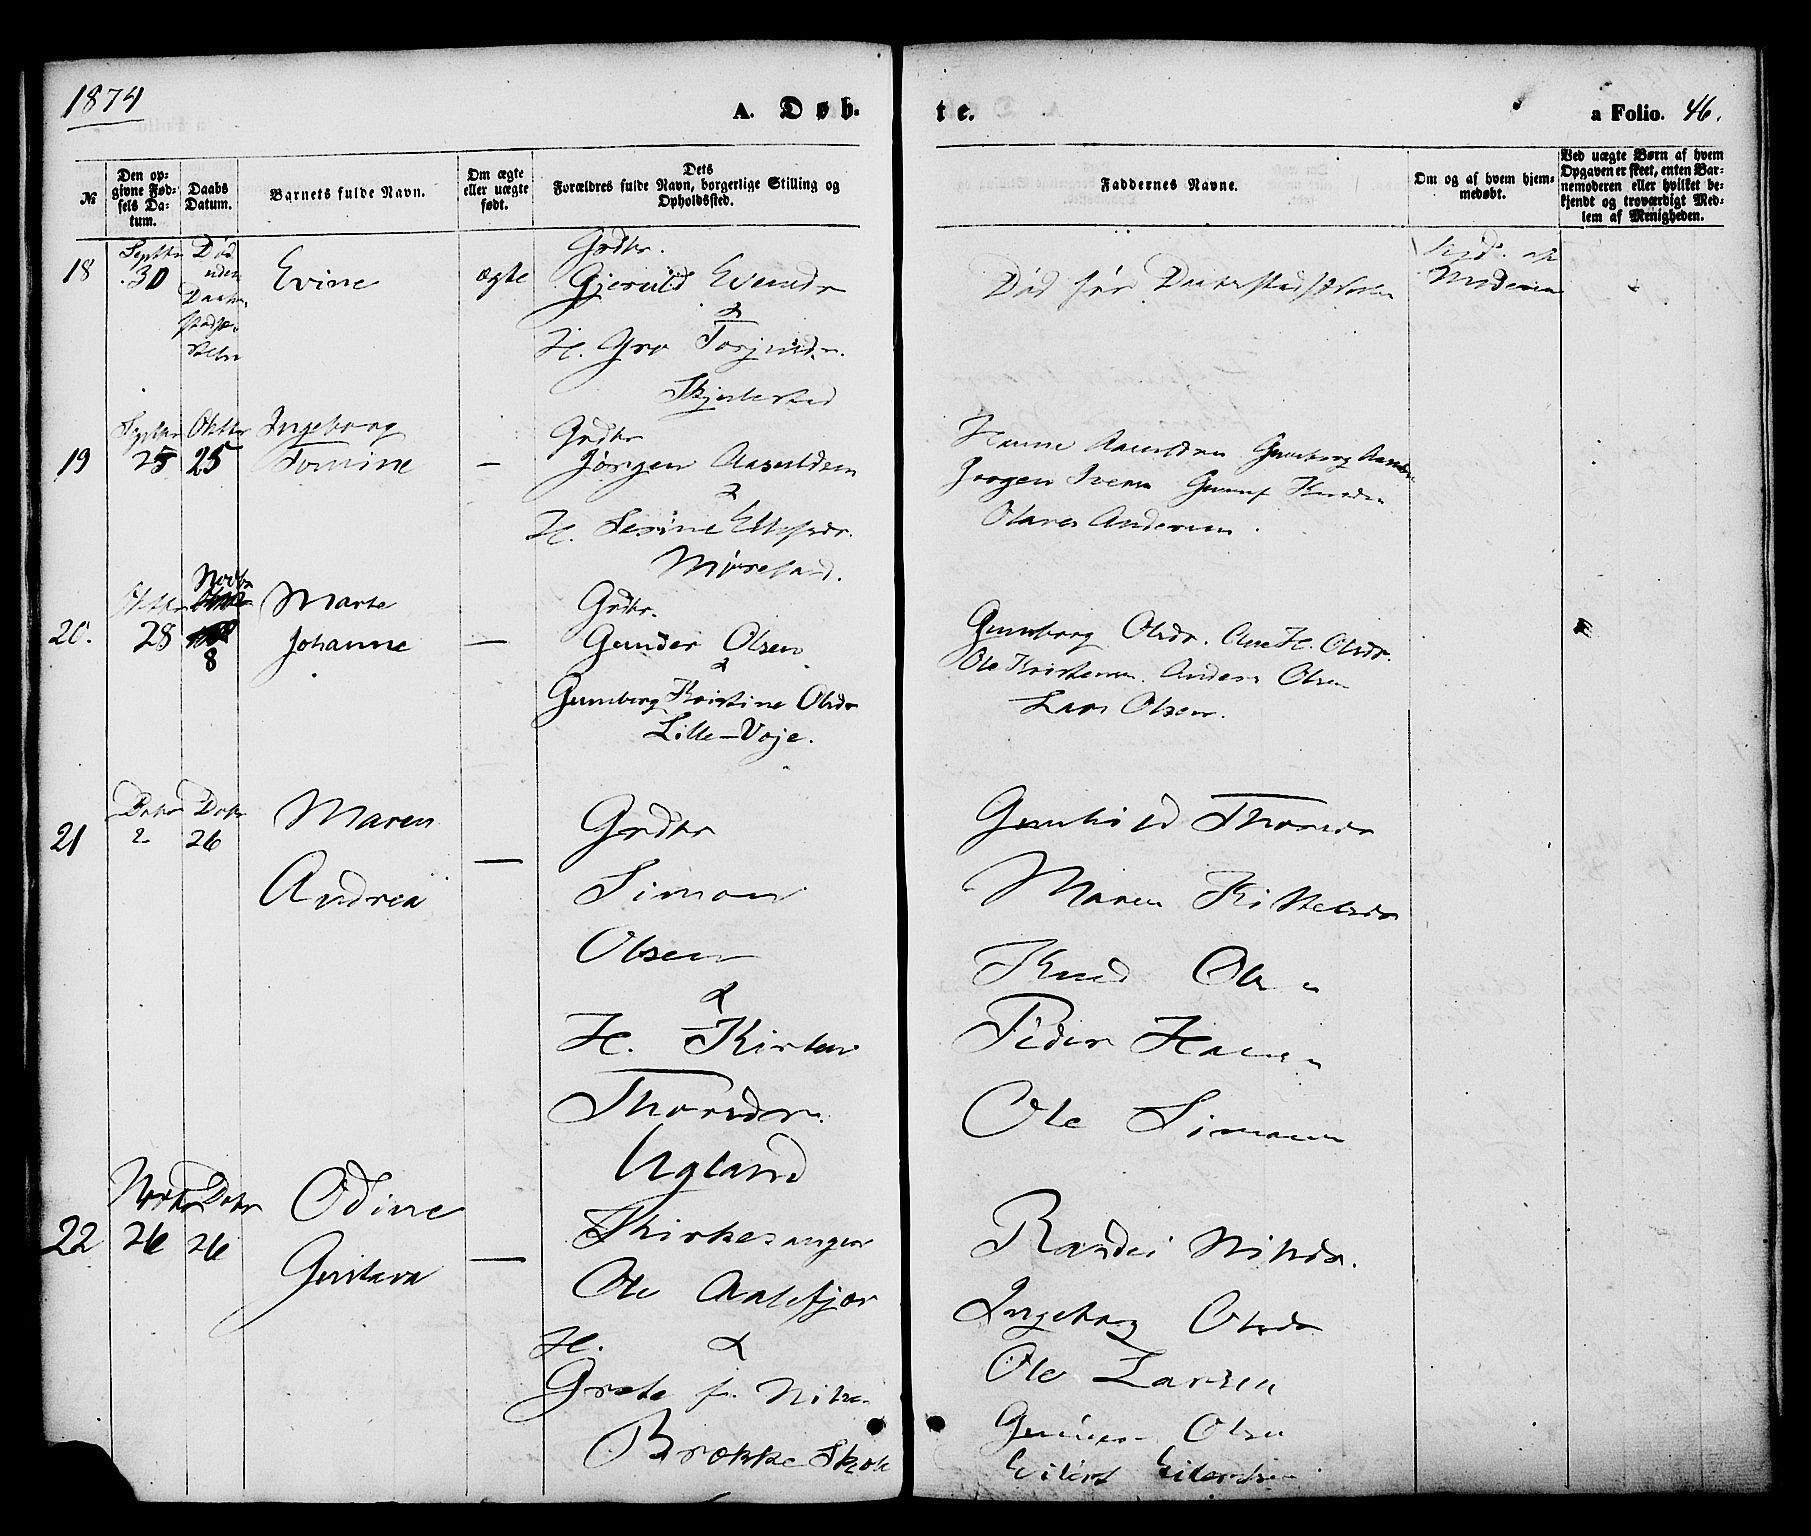 1874
A. Døb.
te.
a Folio. 46.
№
Den op-
givne Fød-
sels Da-
tum.
Daabs
Datum.
Barnets fulde Navn.
Om ægte
eller uægte
født.
Dets
Forældres fulde Navn, borgerlige Stilling og
Opholdssted.
Faddernes Navne.
Om og af hvem hjem-
medøbt.
Ved uægte Børn af hvem
Opgaven er skeet, enten Bar-
nemoderen eller hvilket be-
kjendt og troværdigt Med-
lem af Menigheden.
18
Septbr
30
Død
uden
Evine
ægte
Grdbr.
Gjeruld
&
H. Gro
Død før
af
Moderen
19
Septbr
25
Oktbr
25
Ingeborg
Tomine
—
Grdbr
Jørgen Aasuldsen
&
H. Serine Ellefsdr.
Jørgen
Olaves Andersen
20.
Oktbr
28
Novbr
8
Marte
Johanne
—
Grdbr.
Gunder Olsen
&
Gunborg Kristine Olsdr
Lille-Voje.
Gunborg Olsdr. Ane H. Olsdr.
Ole Kristensen Anders Olsen
Lars Olsen.
21
Debr
2
Debr
26
Maren
Andrea
—
Grdbr
Simon
Olsen
&
H. Kirsten
Thorsdr.
Ugland
Gunhild Thorsdr
Maren Kittelsdr
Knud Olsen
Peder Hansen
Ole Simonsen
22
Novbr
26
Debr
26
Odine
Gustava
—
Kirkesanger
Ole Aalefjær
H. &
Grete f. Nilsen
Brække Skole
Randei Nilsdr.
Ingeborg Olsdr
Ole Larsen
Gunder Olsen
Eilert Eilertsen